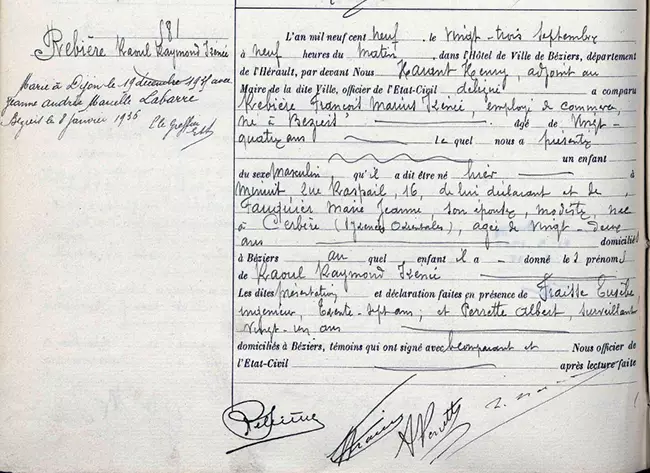 581
Rebière Raoul Raymond Irénée
Marié à Dijon le 19 décembre 1935 avec
Jeanne Andrée Marcelle Labarre
Béziers le 8 Janvier 1936
Le Greffier
L'an mil neuf cent neuf, le vingt-trois Septembre
à neuf heures du matin, dans l'Hôtel de Ville de Béziers, département
de l'Hérault, par devant Nous Havant Henry adjoint au
Maire de la dite Ville, officier de l'Etat-Civil délégué a comparu
Rebière François Marius Irénée, employé de commerce,
né à Béziers, âgé de vingt-
quatre ans Le quel nous a présenté
un enfant
du sexe masculin, qu'il a dit être né hier à
Minuit rue Raspail, 16, de lui déclarant et de
Fauquier Marie Jeanne, son épouse, modiste, née
à Cerbère (Pyrénées Orientales), agée de vingt-deux
ans domiciliés
à Béziers au quel enfant il a donné le 2 prénoms
de Raoul Raymond Irénée
Les dites présentation et déclaration faites en présence de Fraisse Eusèbe
ingénieur, trente-sept ans, et Perrette Albert, surveillant
vingt-un ans
domiciliés à Béziers, témoins qui ont signé avec le comparant et Nous officier de
l'Etat-Civil après lecture faite
Rebière Fraisse A Perrette